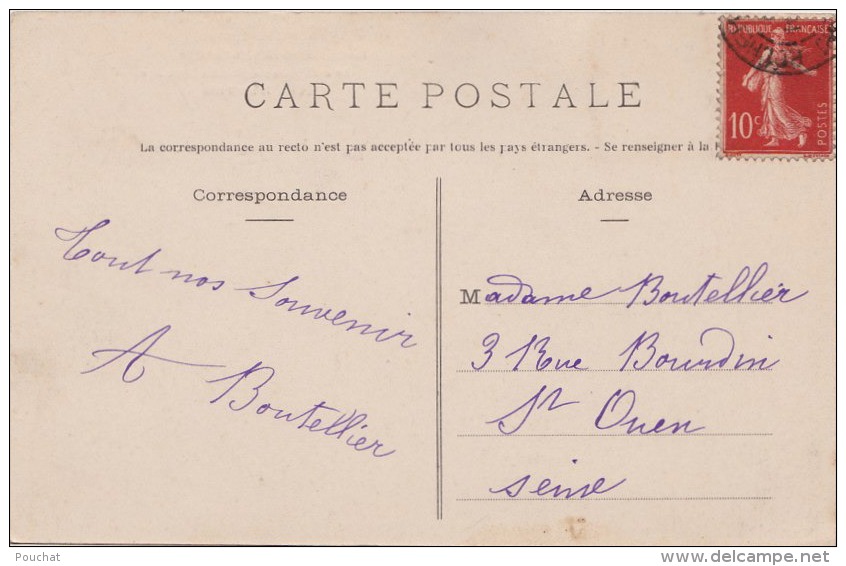 RÉPUBLIQUE FRANÇAISE
10c
POSTES
CARTE POSTALE
La correspondance au recto n'est pas acceptée par tous les pays étrangers. - Se renseigner à la
Correspondance
Tout nos Souvenir
A Boutellier
Adresse
Madame Boutellier
3 Rue Bourdin
St Ouen
Seine
Pouchat
www.delcampe.net